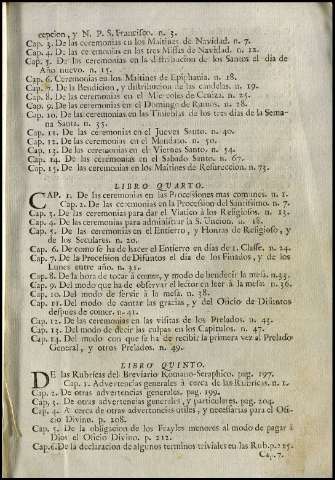 cepcion, y N. P. S. Francisco. n. 3.
Cap. 3. De las ceremonias en los Maitines de Navidad. n. 7.
Cap. 4. De las ceremonias en las tres Missas de Navidad. n. 12.
Cap. 5. De las ceremonias en la distribucion de los Santos el dia de
Año nuevo. n. 15.
Cap. 6. Ceremonias en los Maitines de Epiphania. n. 18.
Cap. 7. De la Bendicion, y distribucion de las candelas. n. 19.
Cap. 8. De las ceremonias en el Miercoles de Ceniza. n. 25.
Cap. 9. De las ceremonias en el Domingo de Ramos. n. 28.
Cap. 10. De las ceremonias en las Tinieblas de los tres dias de la Sema-
na Santa. n. 35.
Cap. 11. De las ceremonias en el Jueves Santo. n. 40.
Cap. 12. De las ceremonias en el Mandato. n. 50.
Cap. 13. De las ceremonias en el Viernes Santo. n. 54.
Cap. 14. De las ceremonias en el Sabado Santo. n. 67.
Cap. 15. De las ceremonias en los Maitines de Resurreccion. n. 73.
LIBRO QUARTO.
CAP. 1. De las ceremonias en las Procesiones mas comunes. n. 1.
Cap. 2. De las ceremonias en la Procession del Santissimo. n. 7.
Cap. 3. De las ceremonias para dar el Viatico à los Religiosos. n. 13.
Cap. 4. De las ceremonias para administrar la S. Uncion. n. 18.
Cap. 5. De las ceremonias en el Entierro, y Honras de Religioso, y
de los Seculares. n. 20.
Cap. 6. De como se ha de hacer el Entierro en dias de 1. Classe. n. 24.
Cap. 7. De la Procesion de Difuntos el dia de los Finados, y de los
Lunes entre año. n. 31.
Cap. 8. De la hora de tocar à comer, y modo de bendecir la mesa. n. 33.
Cap. 9. Del modo que ha de observar el lector en leer à la mesa. n. 36.
Cap. 10. Del modo de servir à la mesa. n. 38.
Cap. 11. Del modo de cantar las gracias, y del Oficio de Difuntos
despues de comer. n. 41.
Cap. 12. De las ceremonias en las visitas de los Prelados. n. 43.
Cap. 13. Del modo de decir las culpas en los Capitulos. n. 47.
Cap. 14. Del modo con que se ha de recibir la primera vez al Prelado
General, y otros Prelados. n. 49.
LIBRO QUINTO.
DE las Rubricas del Breviario Romano-Seraphico. pag. 197.
Cap. 1. Advertencias generales à cerca de las Rubricas. n. 1.
Cap. 2. De otras advertencias generales. pag. 199.
Cap. 3. De otras advertencias generales, y particulares. pag. 204.
Cap. 4. A cerca de otras advertencias utiles, y necessarias para el Ofi-
cio Divino. p. 208.
Cap. 5. De la obligacion de los Frayles menores al modo de pagar à
Dios el Oficio Divino. p. 212.
Cap. 6. De la declaracion de algunos terminos triviales en las Rub. p. 215.
Cap. 7.